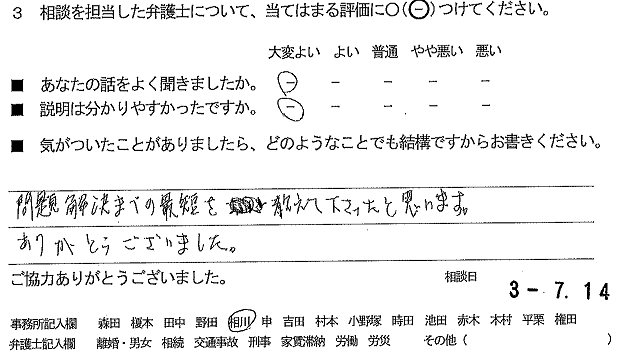 3 相談を担当した弁護士について、当てはまる評価に○(⊖)つけてください。
大変よい よい 普通 やや悪い 悪い
■ あなたの話をよく聞きましたか。 － － － － －
■ 説明は分かりやすかったですか。 － － － － －
■ 気がついたことがありましたら、どのようなことでも結構ですからお書きください。
問題解決までの最短を 教えて下さったと思います。
ありがとうございました。
ご協力ありがとうございました。 相談日 3-7.14
事務所記入欄 森田 榎本 田中 野田 相川 申 吉田 村本 小野塚 時田 池田 赤木 木村 平栗 権田
弁護士記入欄 離婚・男女 相続 交通事故 刑事 家賃滞納 労働 労災 その他( )